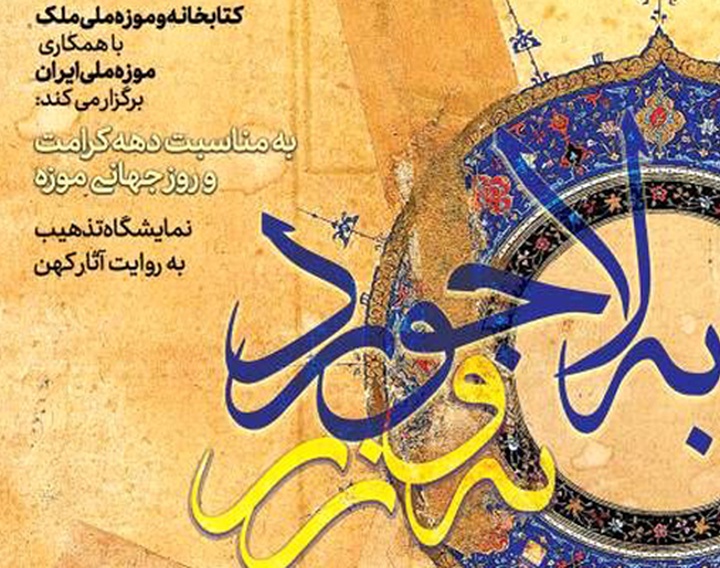 کتابخانه و موزه ملی ملک
با همکاری
موزه ملی ایران
برگزار می کند:
به مناسبت دهه کرامت
و روز جهانی موزه
نمایشگاه تذهیب
به روایت آثار کهن
به لاجورد
و به زر